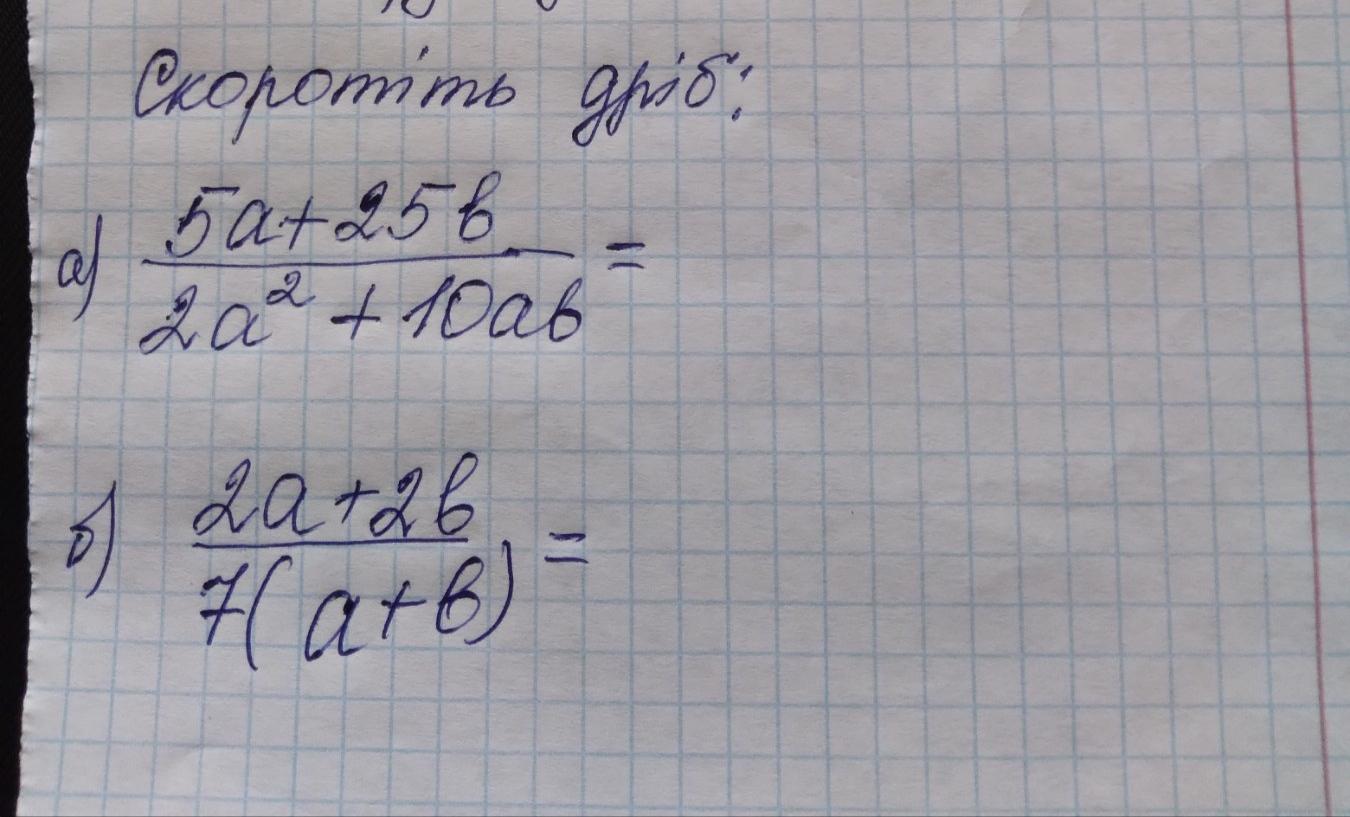 Скоротіть дріб:
а) (5a+25b)/(2a²+10ab) =
б) (2a+2b)/(7(a+b)) =